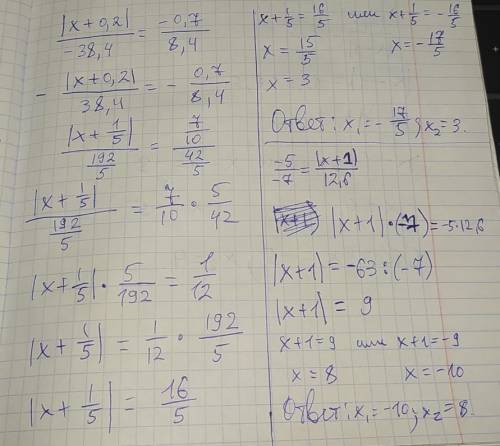 |x+0,2| / -38,4 = -0,7 / 8,4
- |x+0,2| / 38,4 = - 0,7 / 8,4
|x+1/5| / (192/5) = (7/10) / (42/5)
|x+1/5| / (192/5) = 7/10 · 5/42
|x+1/5| · 5/192 = 1/12
|x+1/5| = 1/12 · 192/5
|x+1/5| = 16/5
x+1/5=16/5 или x+1/5=-16/5
x=15/5 x=-17/5
x=3
Ответ: x₁=-17/5; x₂=3.
-5/-7=|x+1|/12,6
|x+1|·(-7)=-5·12,6
|x+1|=-63:(-7)
|x+1|=9
x+1=9 или x+1=-9
x=8 x=-10
Ответ: x₁=-10; x₂=8.